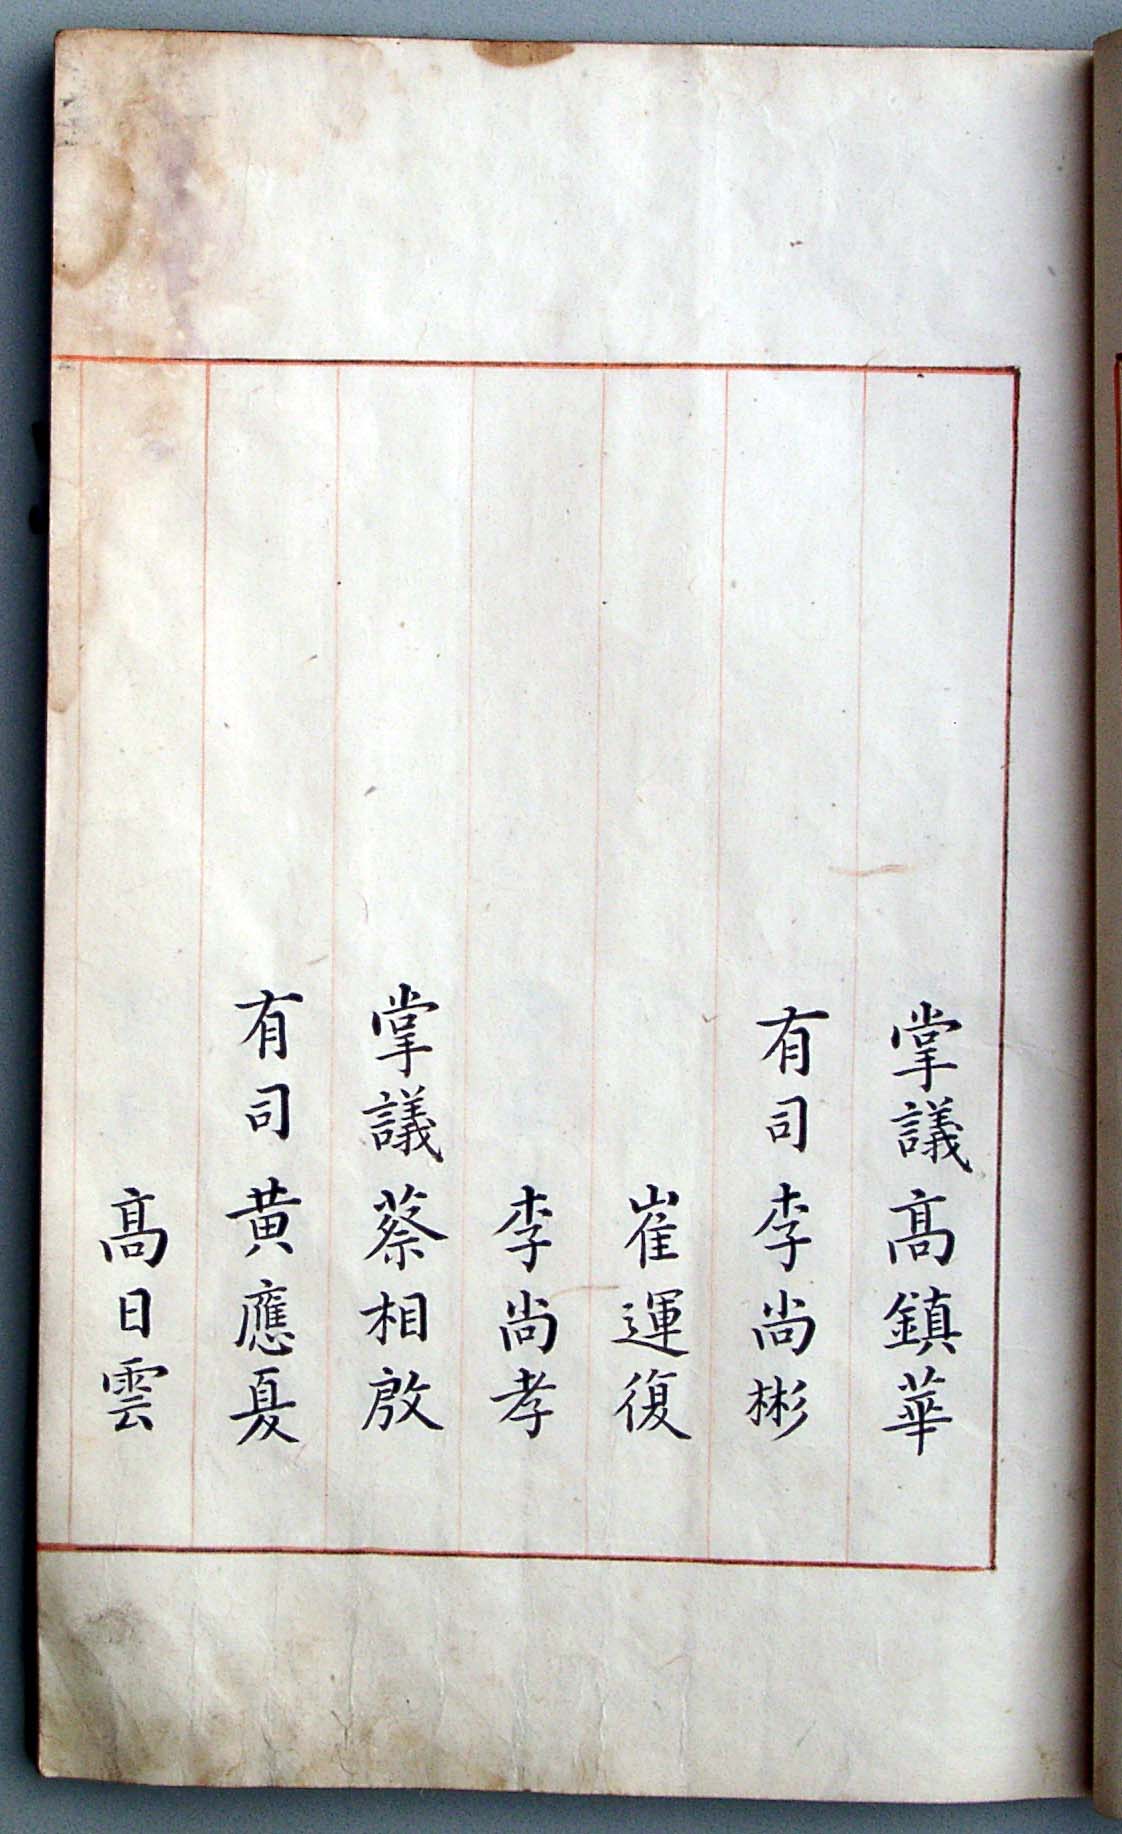 掌議高鎮華
有司李尚彬
崔運復
李尚孝
掌議蔡相啟
有司黄應夏
高日雲